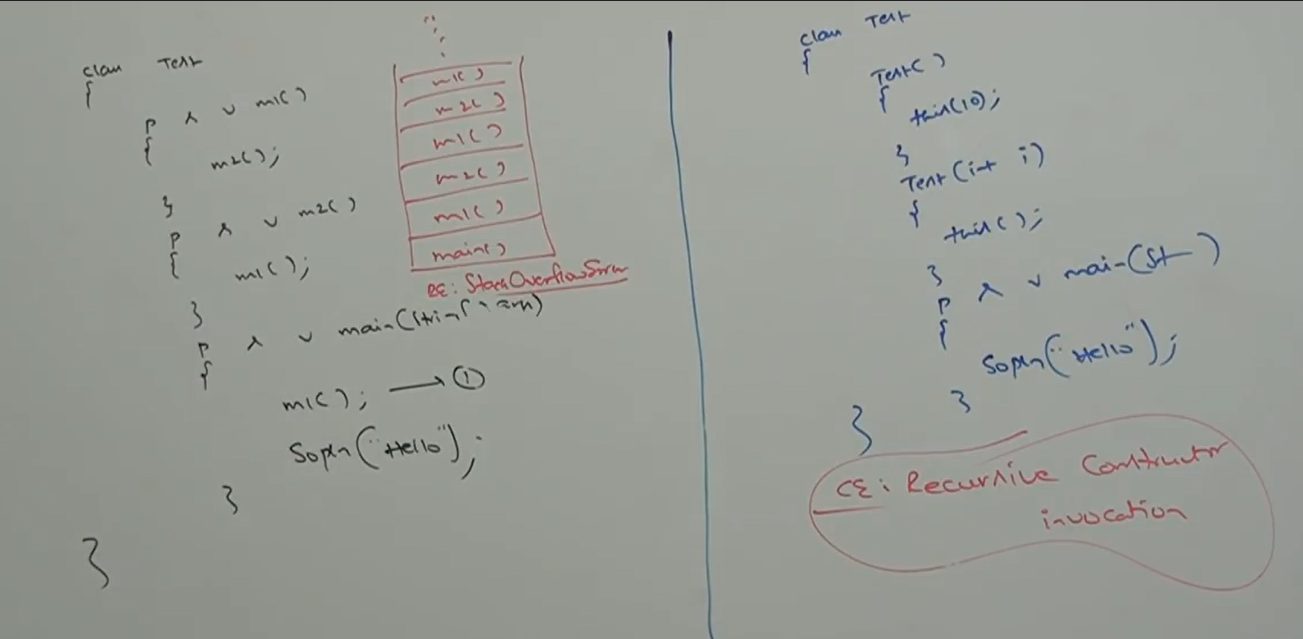 class Test
{
p s v m1()
{
m2();
}
p s v m2()
{
m1();
}
p s v main(String[] args)
{
m1(); → ①
Sopln("Hello");
}
}
⋮
m1()
m2()
m1()
m2()
m1()
main()
RE: StackOverflowError
class Test
{
Test()
{
this(10);
}
Test(int i)
{
this();
}
p s v main(St—)
{
Sopln("Hello");
}
}
CE: Recursive Constructor
invocation